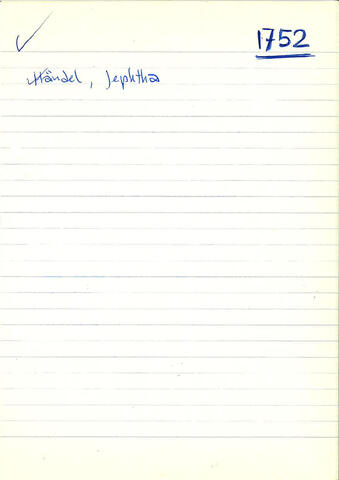 1752
Händel, Jephtha